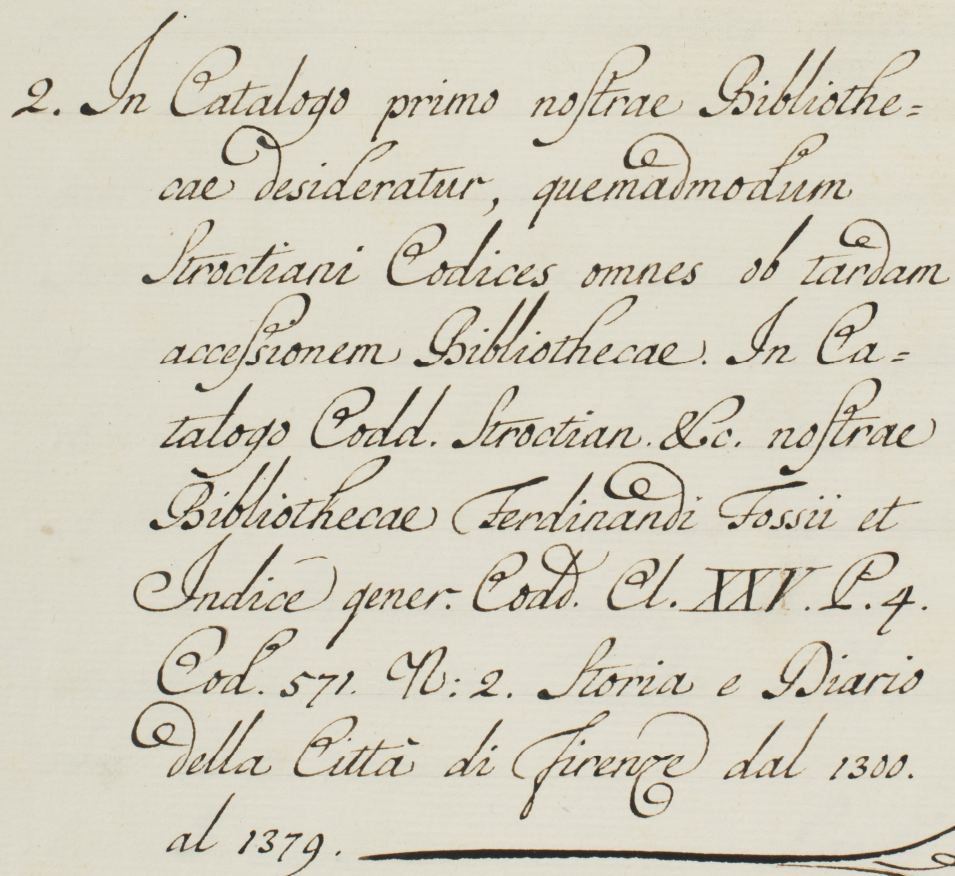 2. In Catalogo primo noſtrae Bibliothe=
cae desideratur, quemadmodum
Stroctiani Codices omnes ob tardam
acceſsionem Bibliothecae. In Ca=
talogo Codd. Stroctian. &c. noſtrae
Bibliothecae Ferdinandi Fossii et
Indice gener. Codd. Cl. XXV. P. 4.
Cod. 571. N: 2. Storia e Diario
della Città di Firenze dal 1300.
al 1379.